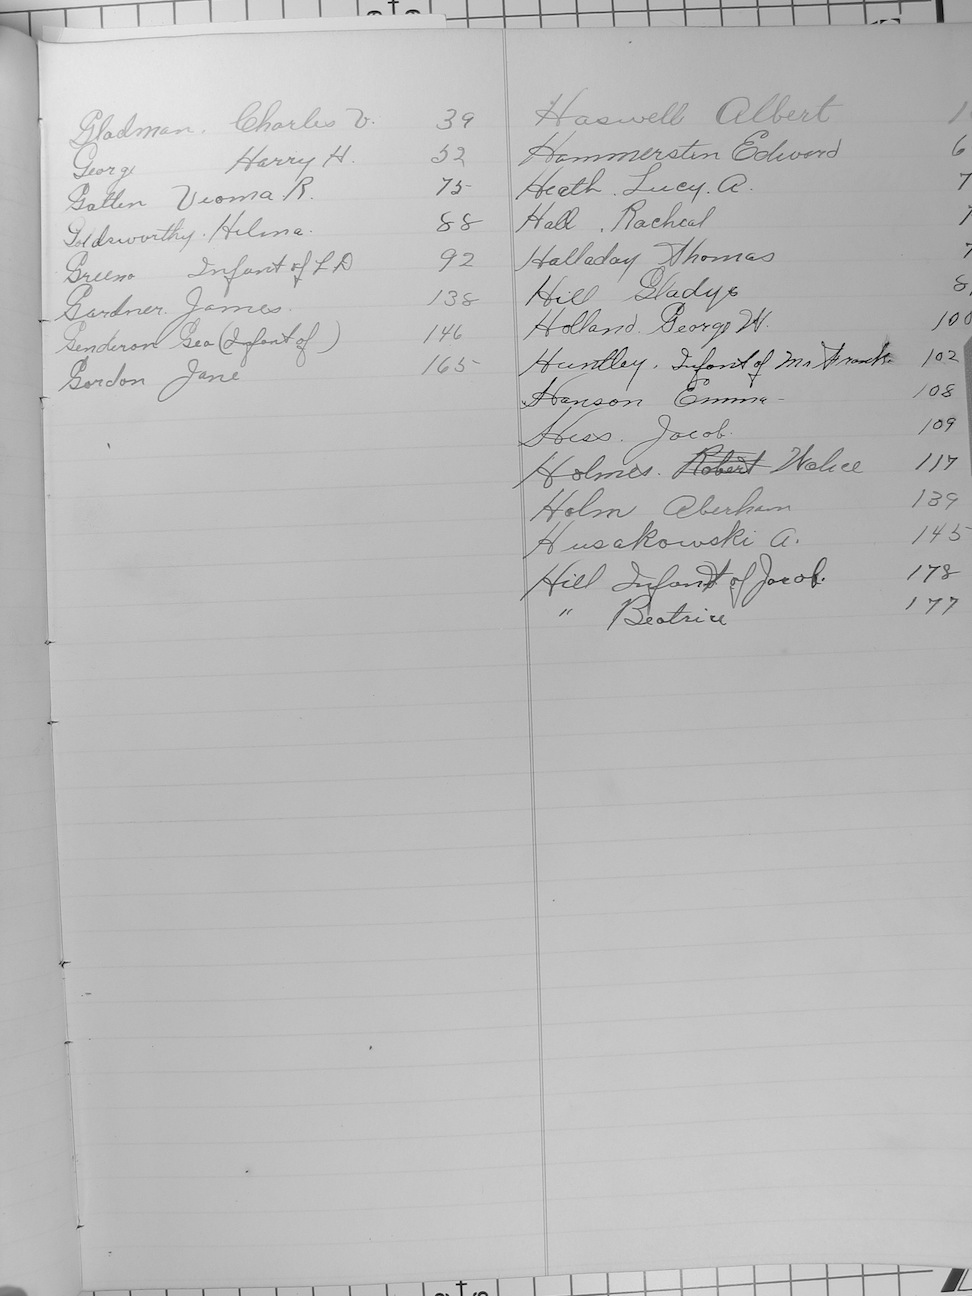 Gladman, Charles V. 39
George Harry H. 52
Gatten Vioma R. 75
Goldsworthy. Hilma. 88
Greeno Infant of L D 92
Gardner. James. 138
Genderon Geo (Infant of) 146
Gordon Jane 165
Haswell Albert 1
Hammersten Edward 6
Heath. Lucy. A. 7
Hall. Racheal 7
Halladay Thomas 7
Hill Gladys 8
Holland. George W. 100
Huntley. Infant of Mr Frank 102
Hanson Emma 108
Hess. Jacob. 109
Holmes. Robert Walice 117
Holm Aberham 139
Husakowski A. 145
Hill Infant of Jacob. 178
" Beatrice 177